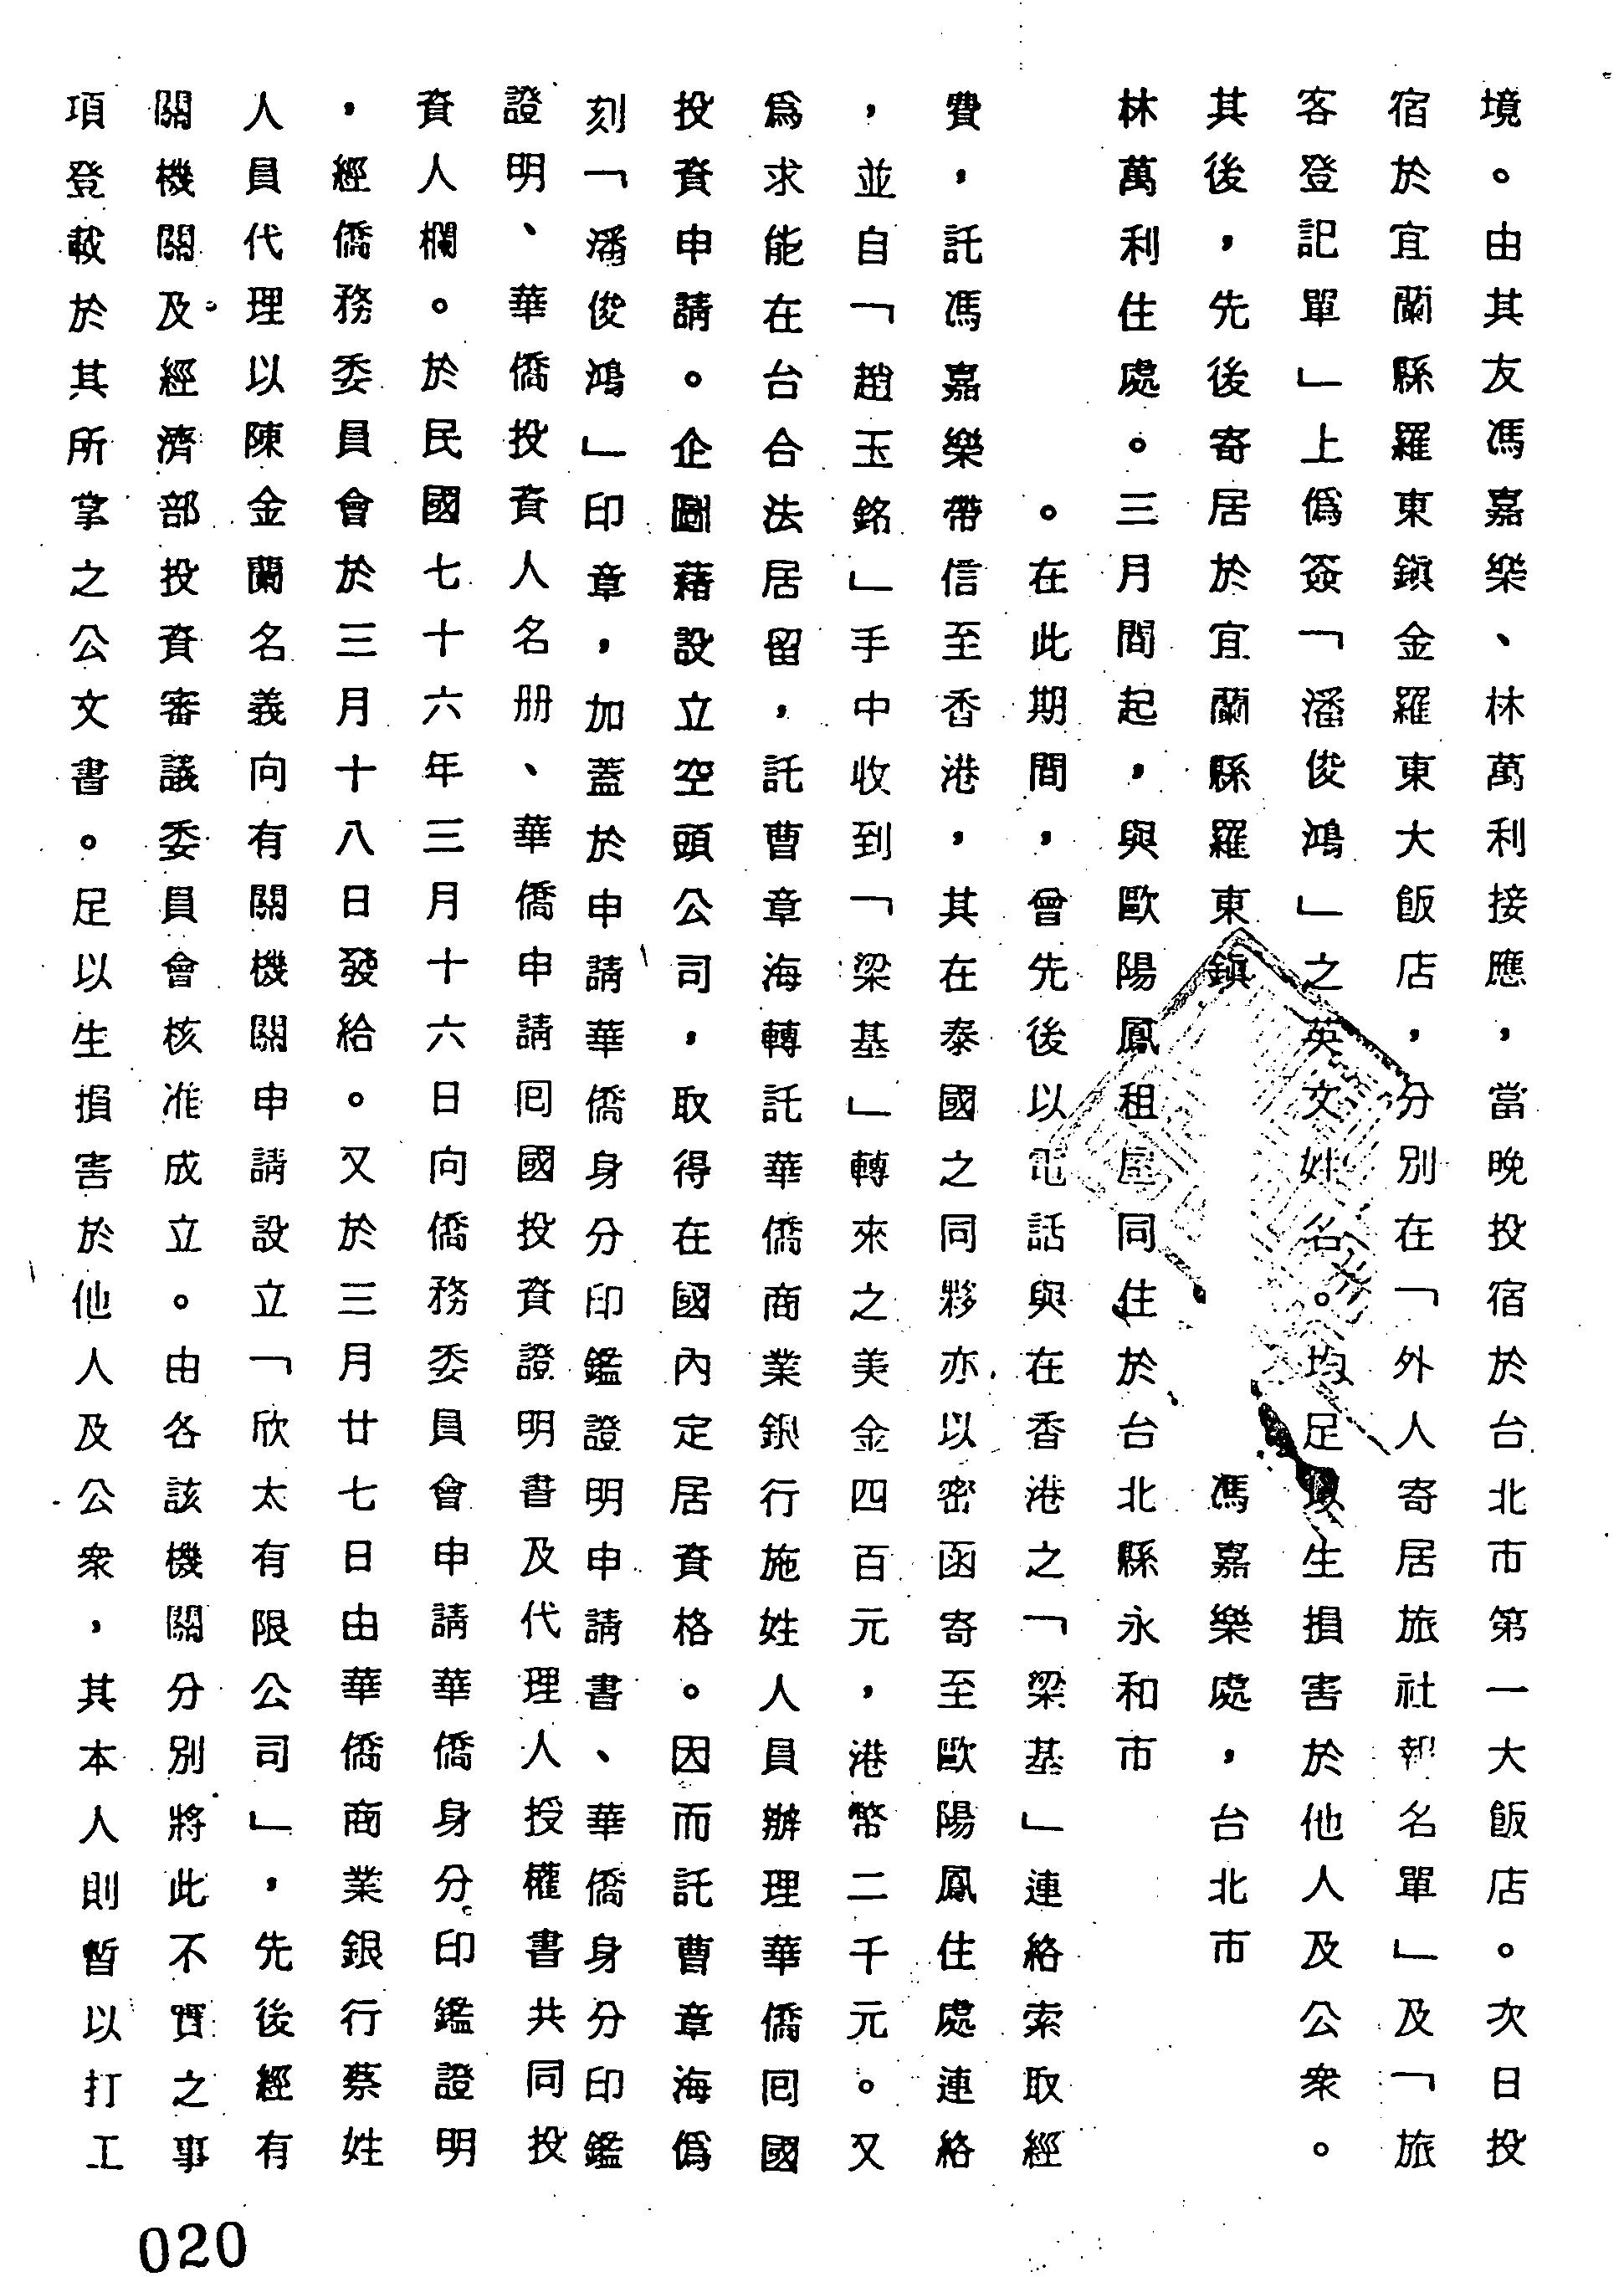 境。由其友馮嘉樂、林萬利接應,當晚投宿於台北市第一大飯店。次日投
宿於宜蘭縣羅東鎮金羅東大飯店,分別在「外人寄居旅社報名單」及「旅
客登記單」上僞簽「潘俊鴻」之英文姓名。均足以生損害於他人及公衆。
其後,先後寄居於宜蘭縣羅東鎮 馮嘉樂處,台北市
林萬利住處。三月間起,與歐陽鳳租屋同住於台北縣永和市
。在此期間,曾先後以電話與在香港之「梁基」連絡索取經
費,託馮嘉樂帶信至香港,其在泰國之同夥亦以密函寄至歐陽鳳住處連絡
,並自「趙玉銘」手中收到「梁基」轉來之美金四百元,港幣二千元。又
爲求能在台合法居留,託曹章海轉託華僑商業銀行施姓人員辦理華僑囘國
投資申請。企圖藉設立空頭公司,取得在國內定居資格。因而託曹章海僞
刻「潘俊鴻」印章,加蓋於申請華僑身分印鑑證明申請書、華僑身分印鑑
證明、華僑投資人名册、華僑申請囘國投資證明書及代理人授權書共同投
資人欄。於民國七十六年三月十六日向僑務委員會申請華僑身分印鑑證明
,經僑務委員會於三月十八日發給。又於三月廿七日由華僑商業銀行蔡姓
人員代理以陳金蘭名義向有關機關申請設立「欣太有限公司」,先後經有
關機關及經濟部投資審議委員會核准成立。由各該機關分別將此不實之事
項登載於其所掌之公文書。足以生損害於他人及公衆,其本人則暫以打工
020